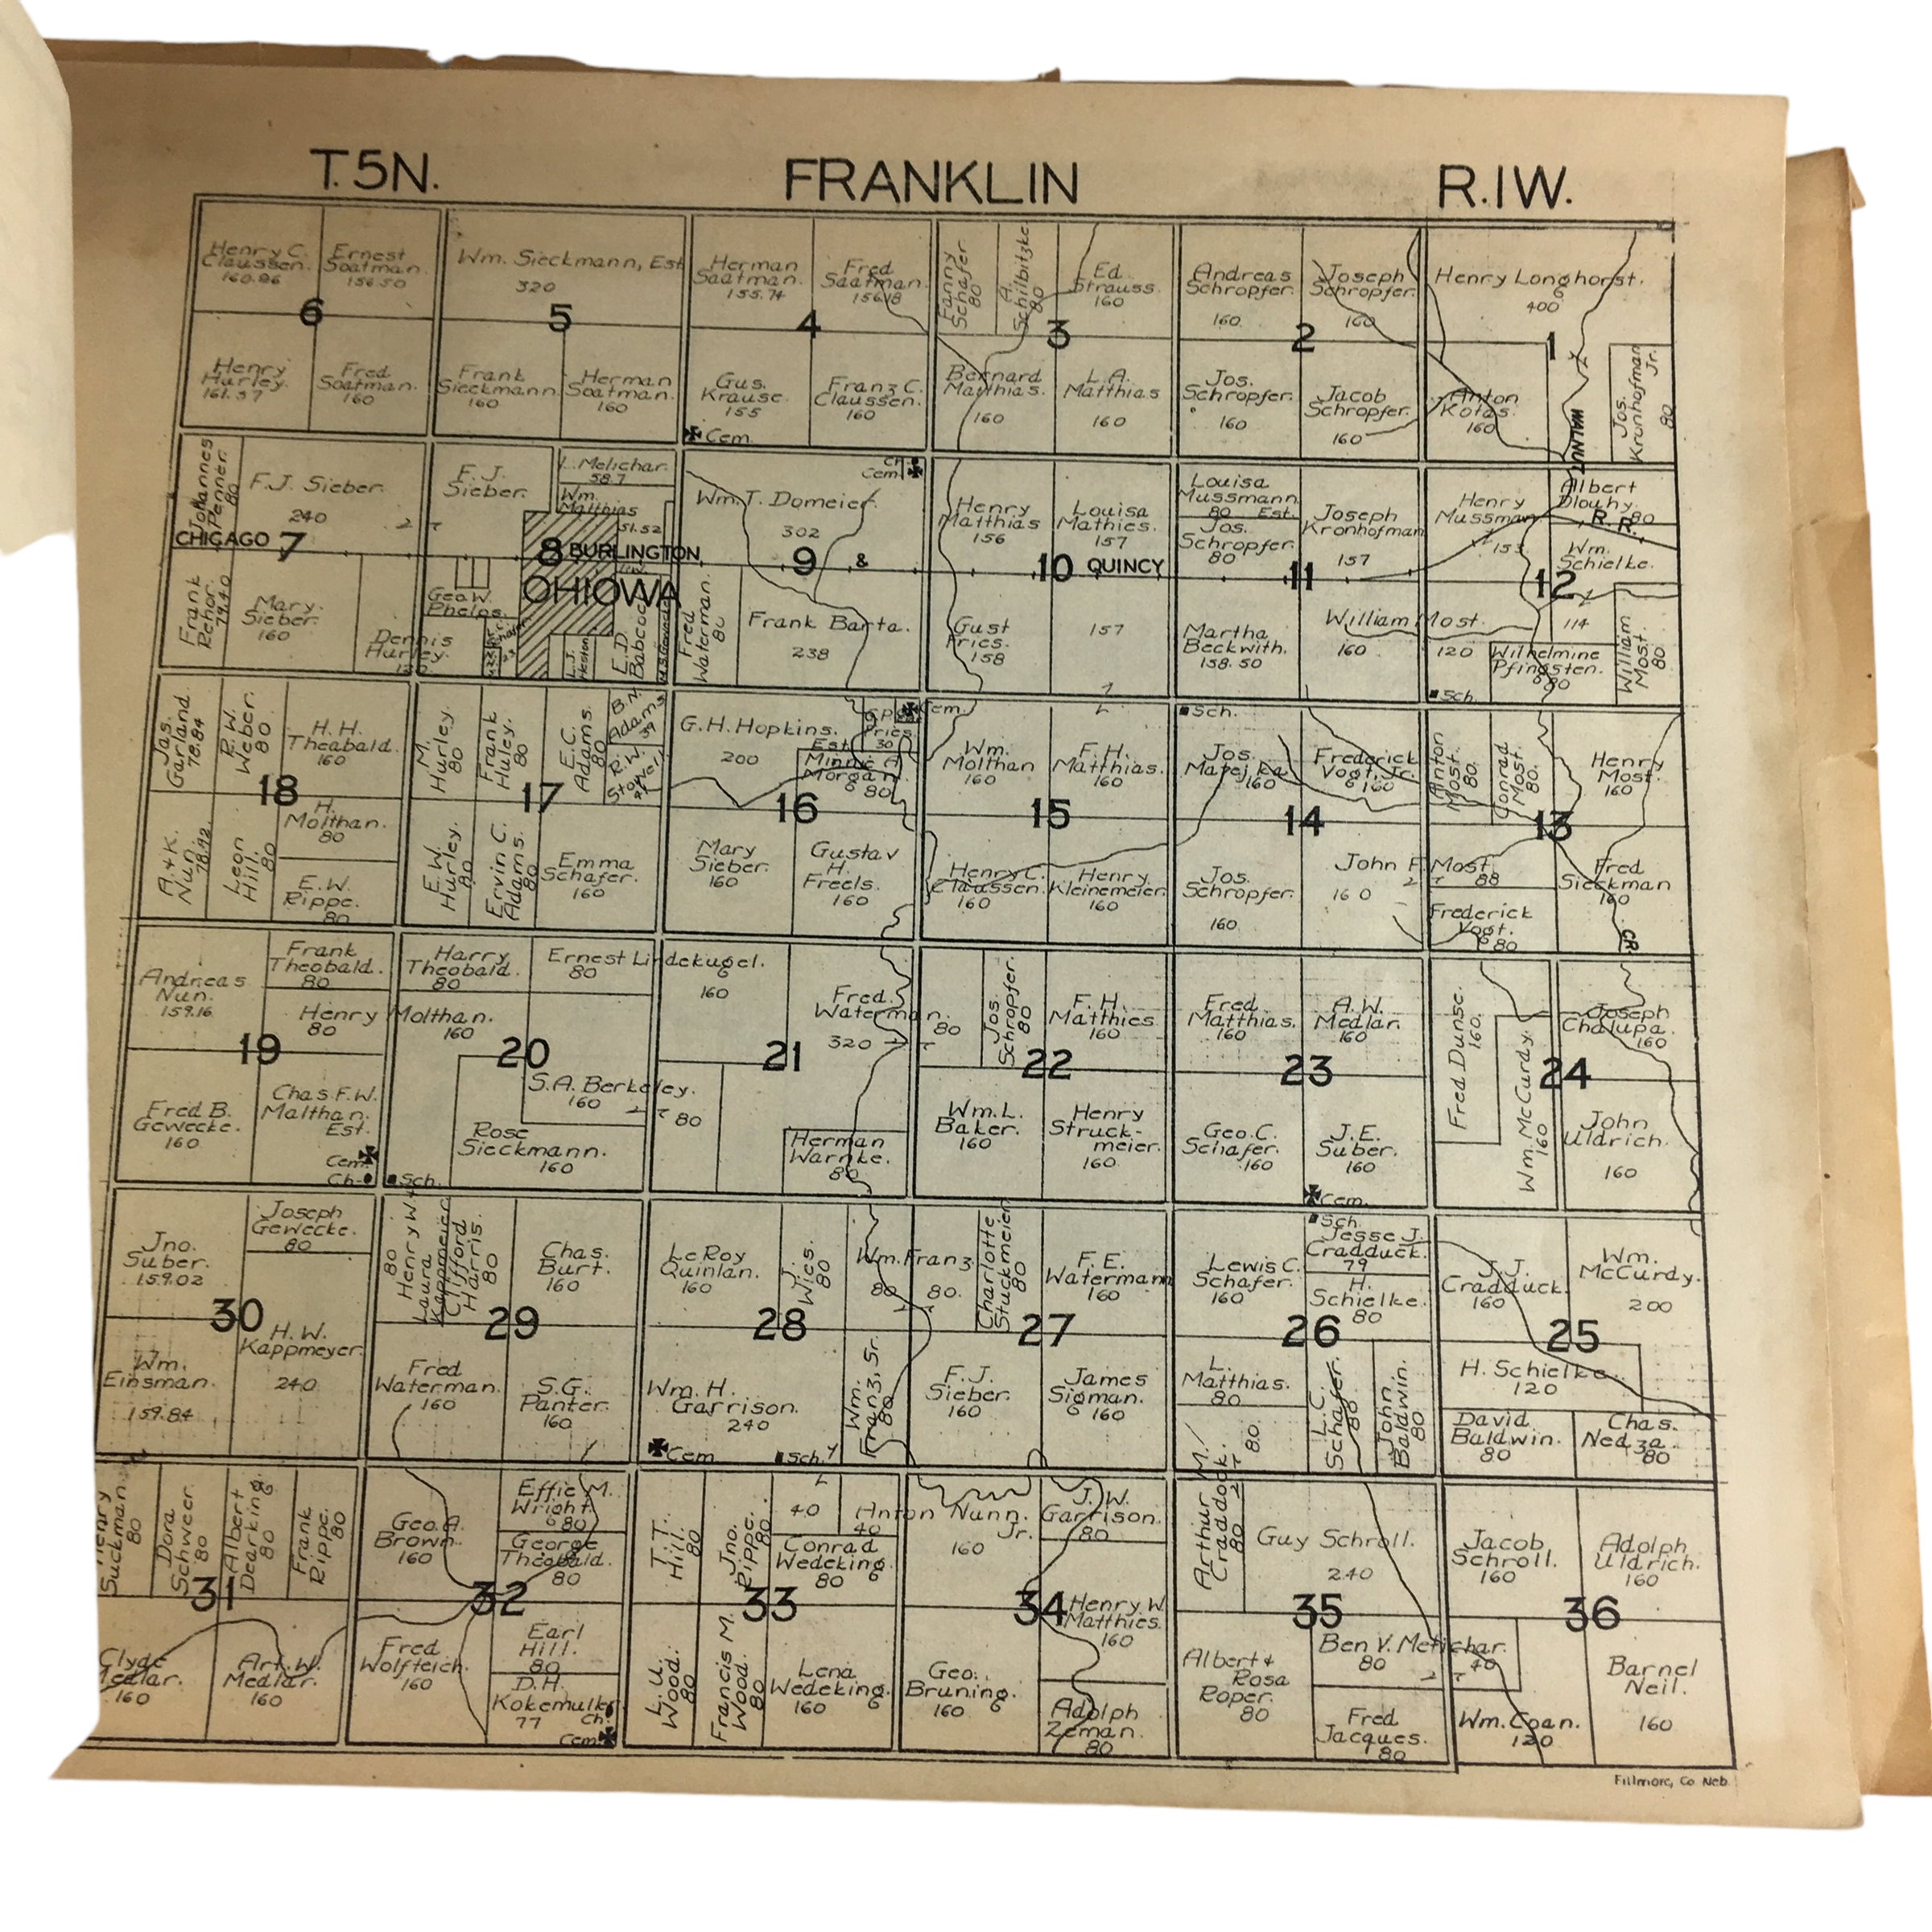 T.5N.
FRANKLIN
R.1W.
Henry C.
Claussen.
160.86
Ernest
Soatman.
156.50
6
Henry
Hurley.
161.37
Fred
Soatman.
160
Wm. Sieckmann, Est
320
5
Frank
Sieckmann.
160
Herman
Soatman.
160
Herman
Saatman.
155.74
Fred
Saatman.
156.18
4
Gus.
Krause.
155
Franz C.
Claussen.
160
Cem.
Fanny
Schafer
80
A.
Schilbitzke
80
Ed.
Strauss.
160
3
Bernard
Matthias.
160
L.A.
Matthias
160
Andreas
Schropfer.
160
Joseph
Schropfer.
160
2
Jos.
Schropfer.
160
Jacob
Schropfer.
160
Henry Longhorst.
400
1
Anton
Kotas.
160
WALNUT
Jos.
Krunhofman
Jr.
80
Johannes
Penner.
80
F.J. Sieber.
240
CHICAGO
7
Frank
Rehor.
79.40
Mary
Sieber.
160
Dennis
Hurley.
120
F.J.
Sieber.
L. Melichar.
58.7
Wm.
Matthias
51.52
8
BURLINGTON
OHIOWA
Geo.W.
Phelps.
L.J.
Heston
E.D.
Babcock
Ch.
Cem.
Wm.T. Domeier.
302
9
&
Fred
Waterman.
80
Frank Barta.
238
Henry
Matthias
156
Louisa
Mathies.
157
10
QUINCY
Gust
Fries.
158
157
Louisa
Mussmann
80 Est.
Jos.
Schropfer.
80
Joseph
Kronhofman
157
11
Martha
Beckwith.
158.50
William Most.
160
120
Henry
Mussman
153
Albert
Dlouhy.
80
R.R.
Wm.
Schielke.
12
114
Wilhelmine
Pfingsten.
80
William
Most.
80
Sch.
Jas.
Garland.
78.84
R.W.
Weber.
80
H.H.
Theabald.
160
18
A.+K.
Nun.
78.92
Leon
Hill.
80
H.
Molthan.
80
E.W.
Rippe.
80
M.
Hurley.
80
Frank
Huley.
80
E.C.
Adams.
80
B.N.
Adams
39
R.W.
Stowell
17
E.W.
Hurley.
80
Ervin C.
Adams.
80
Emma
Schafer.
160
G.H. Hopkins.
Est.
200
G.P.
Fries.
30
Cem.
Minnie A
Morgan.
80
16
Mary
Sieber.
160
Gustav
H.
Freels.
160
Wm.
Molthan
160
F.H.
Matthias.
160
15
Henry C.
Claussen.
160
Henry
Kleinemeier.
160
Sch.
Jos.
Mapejka
160
Frederick
Vogt, Jr.
160
14
Jos.
Schropfer.
160
John F. Most.
160
88
Anton
Most.
80.
Conrad
Most.
80.
Henry
Most.
160
13
Frederick
Vogt.
80
Fred
Sieckman
160
CR.
Andreas
Nun.
159.16
Frank
Theobald.
80
Henry Molthan.
80
160
19
Fred B.
Gewecke.
160
Chas.F.W.
Malthan.
Est.
Cem.
Ch.
Harry
Theobald.
80
Ernest Lindekugel.
80
160
20
S.A. Berkeley.
160
80
Rose
Sieckmann.
160
Sch.
Fred.
Waterman.
320
80
21
Herman
Warnke.
80
Jos.
Schropfer.
80
F.H.
Matthies
160
22
Wm.L.
Baker.
160
Henry
Struck-
meier.
160
Fred.
Matthias.
160
A.W.
Medlar.
160
23
Geo.C.
Schafer.
160
J.E.
Suber.
160
Cem.
Fred Dunse.
160
Wm. McCurdy.
160
Joseph
Chalupa.
160
24
John
Uldrich.
160
Jno.
Suber.
159.02
Joseph
Gewecke.
80
30
H.W.
Kappmeyer.
240
Wm.
Einsman.
159.84
80
Henry W.+
Laura
Kappmeier
Clifford
Harris.
80
Chas.
Burt.
160
29
Fred
Waterman.
160
S.G.
Panter.
160
LeRoy
Quinlan.
160
J.
Wies.
80
Wm. Franz
80
80.
28
Wm. H.
Garrison.
240
Wm.
Franz, Sr.
80
Cem.
Sch.
Charlotte
Stuckmeier
80
F.E.
Waterman
160
27
F.J.
Sieber.
160
James
Sigman.
160
Lewis C.
Schafer.
160
Sch.
Jesse J.
Cradduck.
79
H.
Schielke.
80
26
L.
Matthias.
80
80.
L.C.
Schafer.
80
John
Baldwin.
80
J.J.
Cradduck.
160
Wm.
McCurdy.
200
25
H. Schielke.
120
David
Baldwin.
80
Chas.
Nedza.
80
Henry
Suckman.
80
Dora
Schweer.
80
Albert
Dearking
80
Frank
Rippe.
80
31
Clyde
Medlar.
160
Art.W.
Medlar.
160
Geo.A.
Brown.
160
Effie M.
Wright.
80
George
Theobald.
80
32
Fred
Wolfteich.
160
Earl
Hill.
80
D.H.
Kokemulker
77
Ch.
Cem.
T.T.
Hill.
80
Jno.
Rippe.
80
40
Anton Nunn.
Jr.
40
160
Conrad
Wedeking
80
33
L.U.
Wood.
80
Francis M.
Wood.
80
Lena
Wedeking.
160
J.W.
Garrison.
80
34
Henry W.
Matthies.
160
Geo.
Bruning.
160
Adolph
Zeman.
80
Arthur M.
Craddock.
80
Guy Schroll.
240
35
Albert +
Rosa
Roper.
80
Ben V. Melichar.
80
40
Fred
Jacques.
80
Jacob
Schroll.
160
Adolph
Uldrich.
160
36
Wm.Coan.
120
Barnel
Neil.
160
Fillmore, Co Neb.